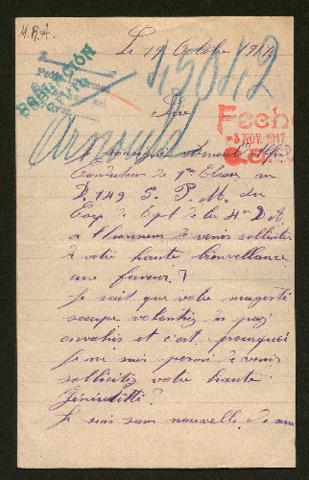 M.R.A.
Le 19 Octobre 1917
45042
Sire
Fech
3 NOV. 1917
Arnould
Conducteur de 1re Classe au
D. 149 S. P. M. du
Corp de de la 4e D A
a l'honneur de venir solliciter
de votre haute bienveillance
une faveur ?
Je sait que votre magesté
occupe volontier des pays
envahis et c'est pourquoi
Je me suis permi de venir
sollicitez votre haute
Générositté ?
Je suis sans nouvelle de ma